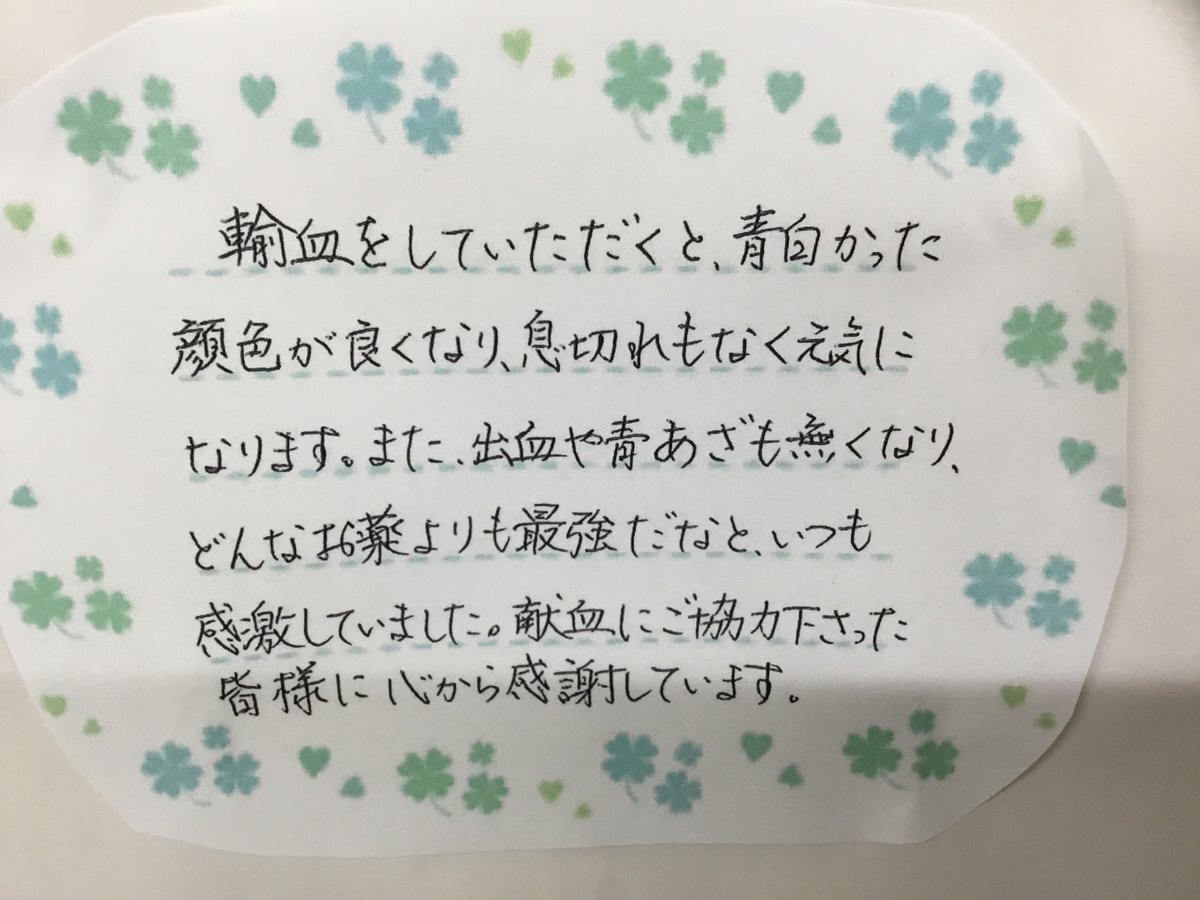 輸血をしていただくと、青白かった
顔色が良くなり、息切れもなく元気に
なります。また、出血や青あざも無くなり、
どんなお薬よりも最強だなと、いつも
感激していました。献血にご協力下さった
皆様に心から感謝しています。